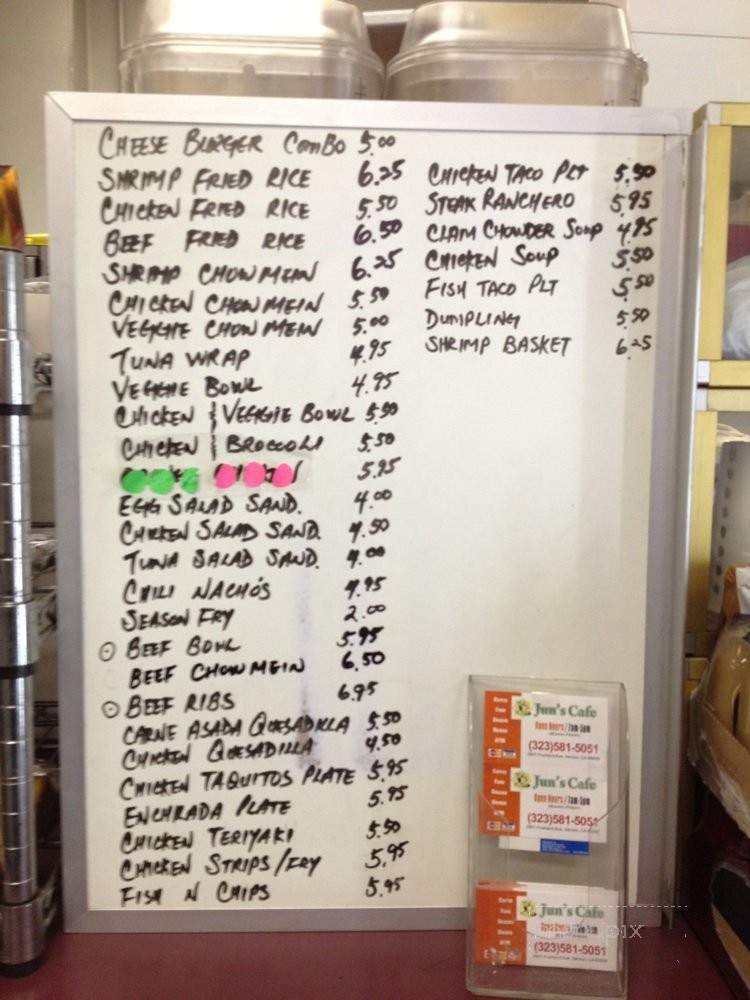 CHEESE BURGER COMBO 5.00
SHRIMP FRIED RICE 6.25
CHICKEN FRIED RICE 5.50
BEEF FRIED RICE 6.50
SHRIMP CHOW MEIN 6.25
CHICKEN CHOW MEIN 5.50
VEGGIE CHOW MEIN 5.00
TUNA WRAP 4.95
VEGGIE BOWL 4.95
CHICKEN & VEGGIE BOWL 5.50
CHICKEN & BROCCOLI 5.50
5.95
EGG SALAD SAND. 4.00
CHICKEN SALAD SAND. 4.50
TUNA SALAD SAND. 4.00
CHILI NACHO'S 4.95
SEASON FRY 2.00
BEEF BOWL 5.95
BEEF CHOW MEIN 6.50
BEEF RIBS 6.95
CARNE ASADA QUESADILLA 5.50
CHICKEN QUESADILLA 4.50
CHICKEN TAQUITOS PLATE 5.95
ENCHILADA PLATE 5.95
CHICKEN TERIYAKI 5.50
CHICKEN STRIPS/FRY 5.95
FISH N CHIPS 5.95
CHICKEN TACO PLT 5.50
STEAK RANCHERO 5.95
CLAM CHOWDER SOUP 4.95
CHICKEN SOUP 5.50
FISH TACO PLT 5.50
DUMPLING 5.50
SHRIMP BASKET 6.25
Jun's Cafe
Open Hours / 7am-5pm
(323)581-5051
Jun's Cafe
Open Hours / 7am-5pm
(323)581-5051
Jun's Cafe
Open Hours / 7am-5pm
(323)581-5051